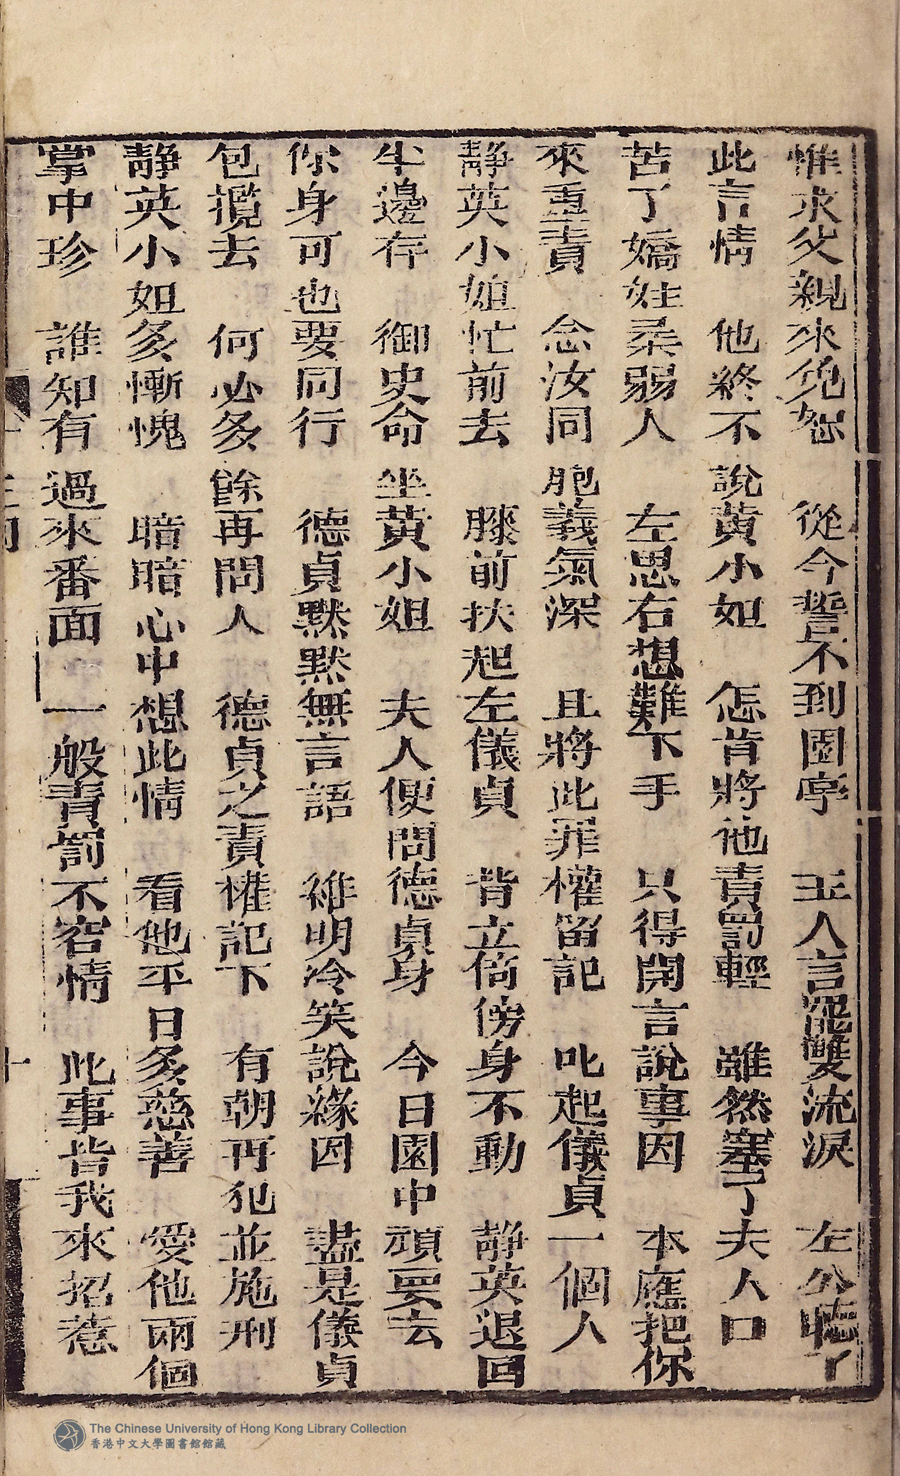 惟求父親來免恕　從今誓不到園亭　五人言罷雙流淚　左公聽了
此言情　他終不說黃小如　怎肯將他責罰輕　雖然塞了夫人口
苦了嬌娃柔弱人　左思右想難下手　只得開言說事因　本應把你
來重責　念汝同胞義氣深　且將此罪權留記　叱起儀貞一個人
靜英小姐忙前去　膝前扶起左儀貞　背立倚傍身不動　靜英退回
坐邊存　御史命坐黃小姐　夫人便問德貞身　今日園中頑要去
你身可也要同行　德貞默默無言語　維明冷笑說緣因　盡是儀貞
包攬去　何必多餘再問人　德貞之責權記下　有朝再犯並施刑
靜英小姐多慚愧　暗暗心中想此情　看他平日多慈善　愛他兩個
掌中珍　誰知有過來番面　一般責罰不容情　此事皆我來招惹
十
The Chinese University of Hong Kong Library Collection
香港中文大學圖書館館藏